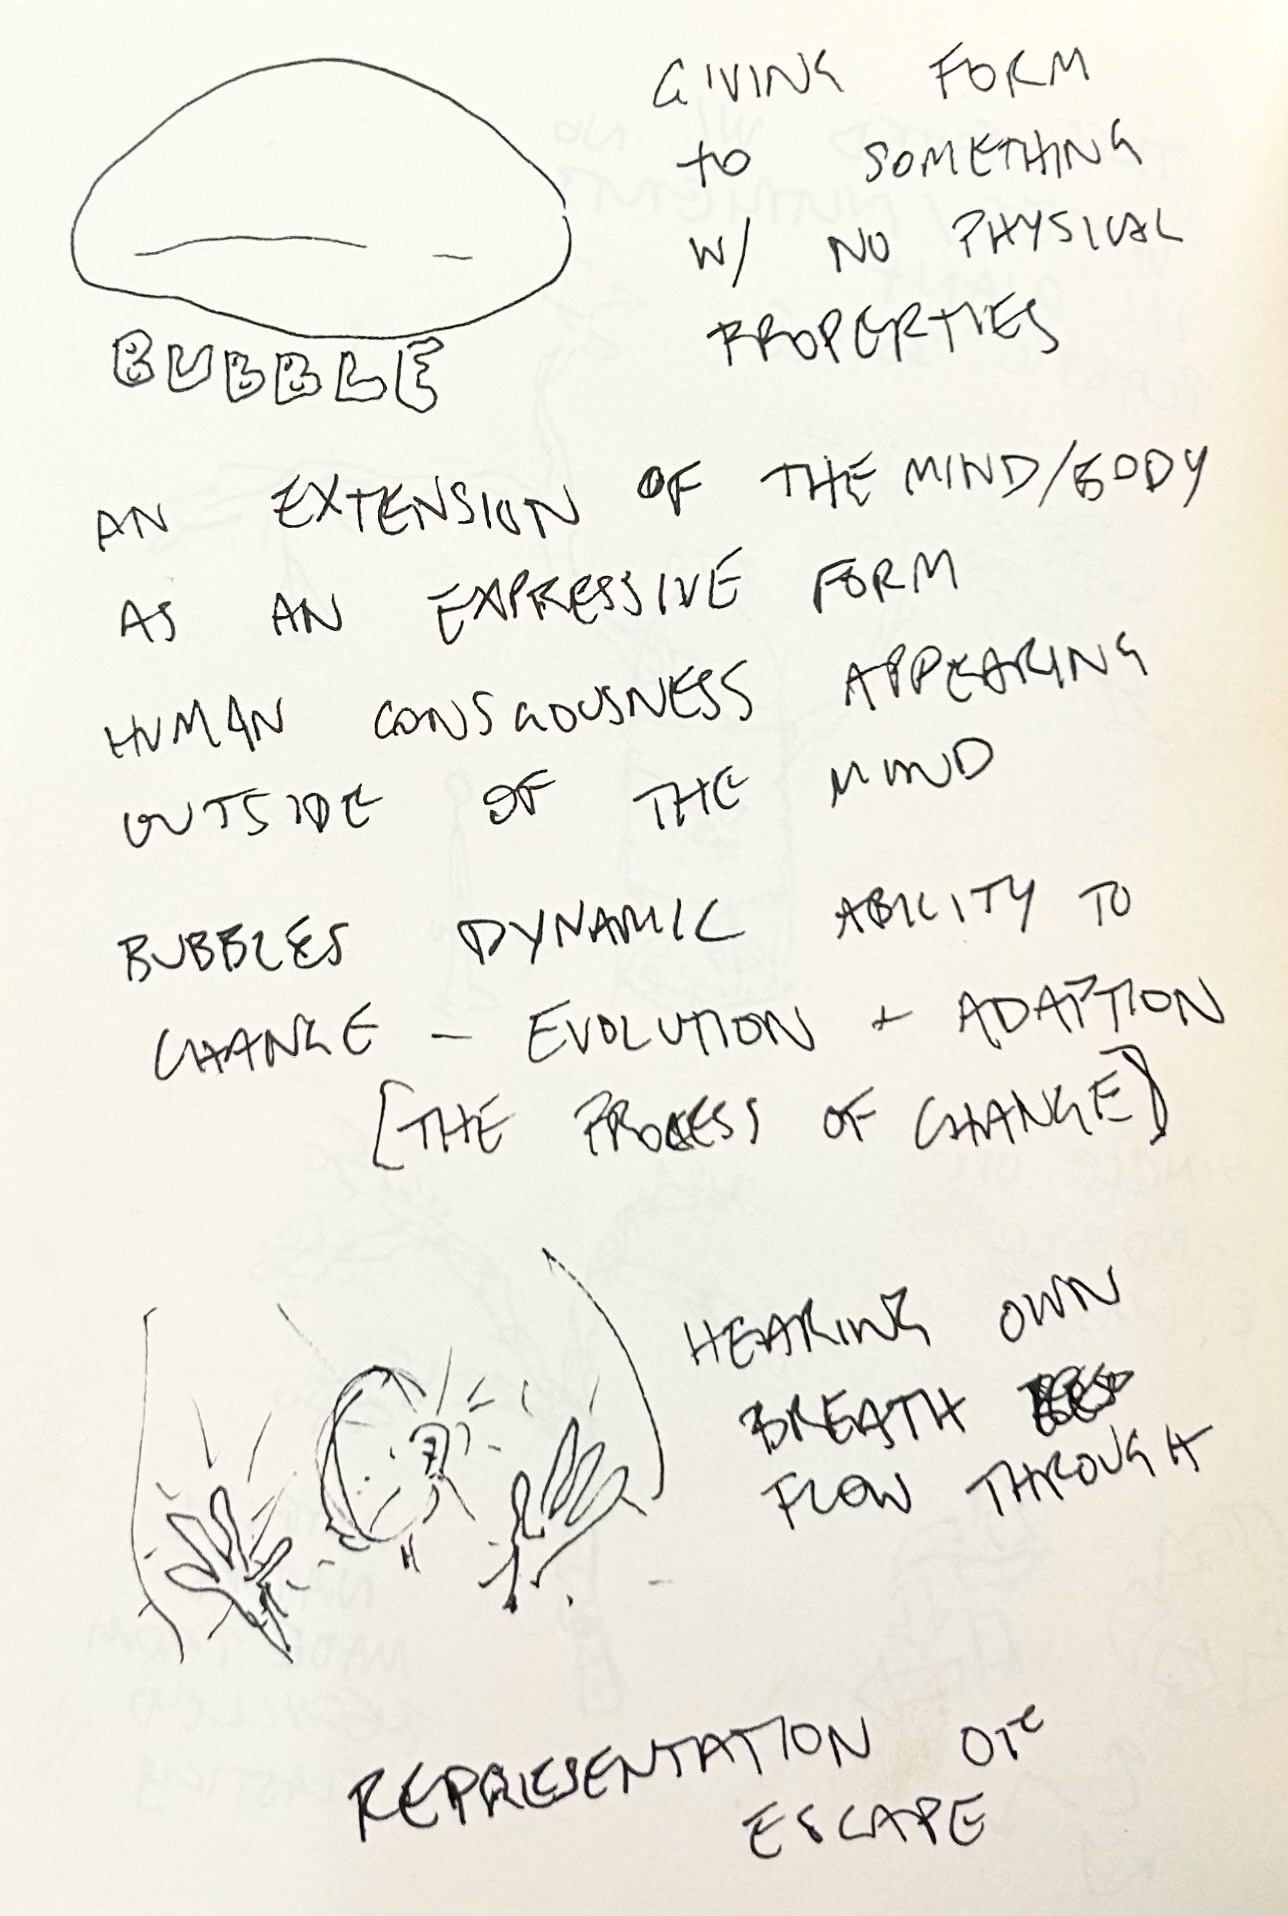 GIVING FORM
TO SOMETHING
W/ NO PHYSICAL
PROPERTIES
BUBBLE
AN EXTENSION OF THE MIND/BODY
AS AN EXPRESSIVE FORM
HUMAN CONSCIOUSNESS APPEARING
OUTSIDE OF THE MIND
BUBBLES DYNAMIC ABILITY TO
CHANGE - EVOLUTION + ADAPTION
[THE PROCESS OF CHANGE]
HEARING OWN
BREATH
FLOW THROUGH
REPRESENTATION OF
ESCAPE